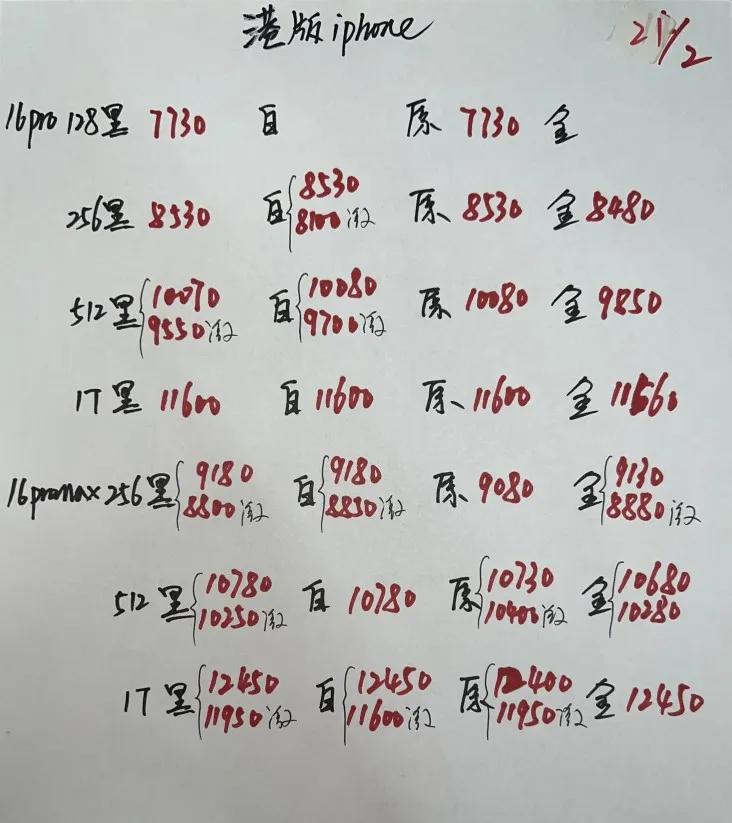 港版iphone 21/2
16pro 128黑 7730 白 原 7730 金
256黑 8530 白 8530 8100激 原 8530 金 8480
512黑 10070 9550激 白 10080 9700激 原 10080 金 9850
1T 黑 11600 白 11600 原 11600 金 11560
16promax 256黑 9180 8800激 白 9180 8830激 原 9080 金 9130 8880激
512 黑 10780 10250激 白 10780 原 10730 10400激 金 10680 10280
1T 黑 12450 11950激 白 12450 11600激 原 12400 11950激 金 12450